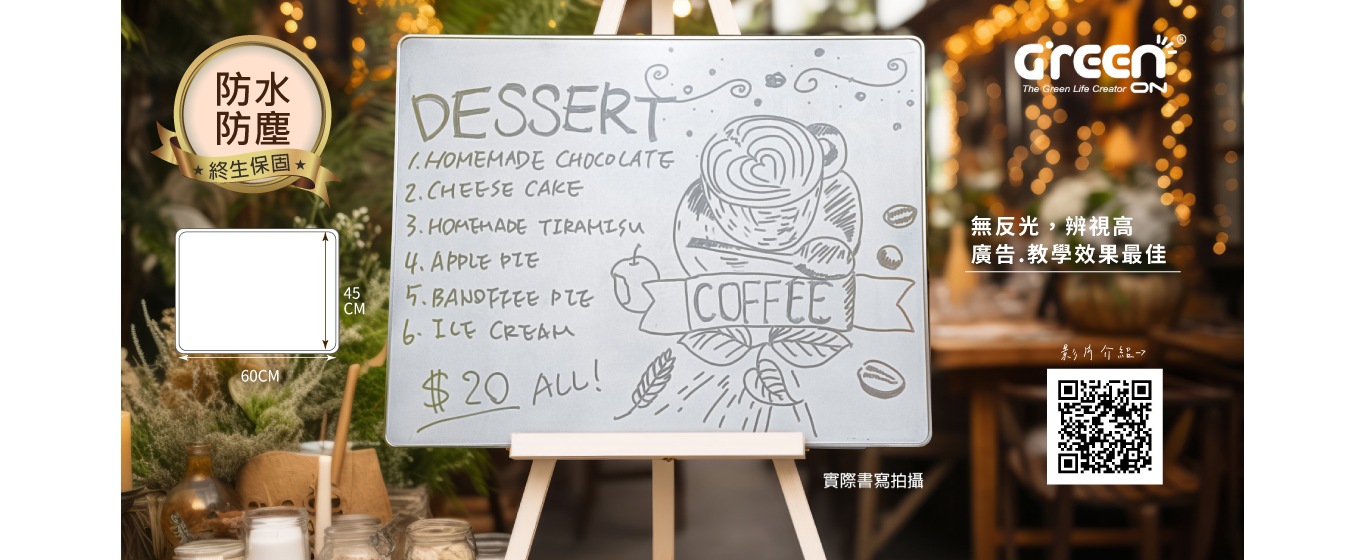 防水
防塵
終生保固
45
CM
60CM
DESSERT
1. HOMEMADE CHOCOLATE
2. CHEESE CAKE
3. HOMEMADE TIRAMISU
4. APPLE PIE
5. BANOFFEE PIE
6. ICE CREAM
$20 ALL!
COFFEE
GREEN ON®
The Green Life Creator
無反光，辨視高
廣告.教學效果最佳
影片介紹→
實際書寫拍攝